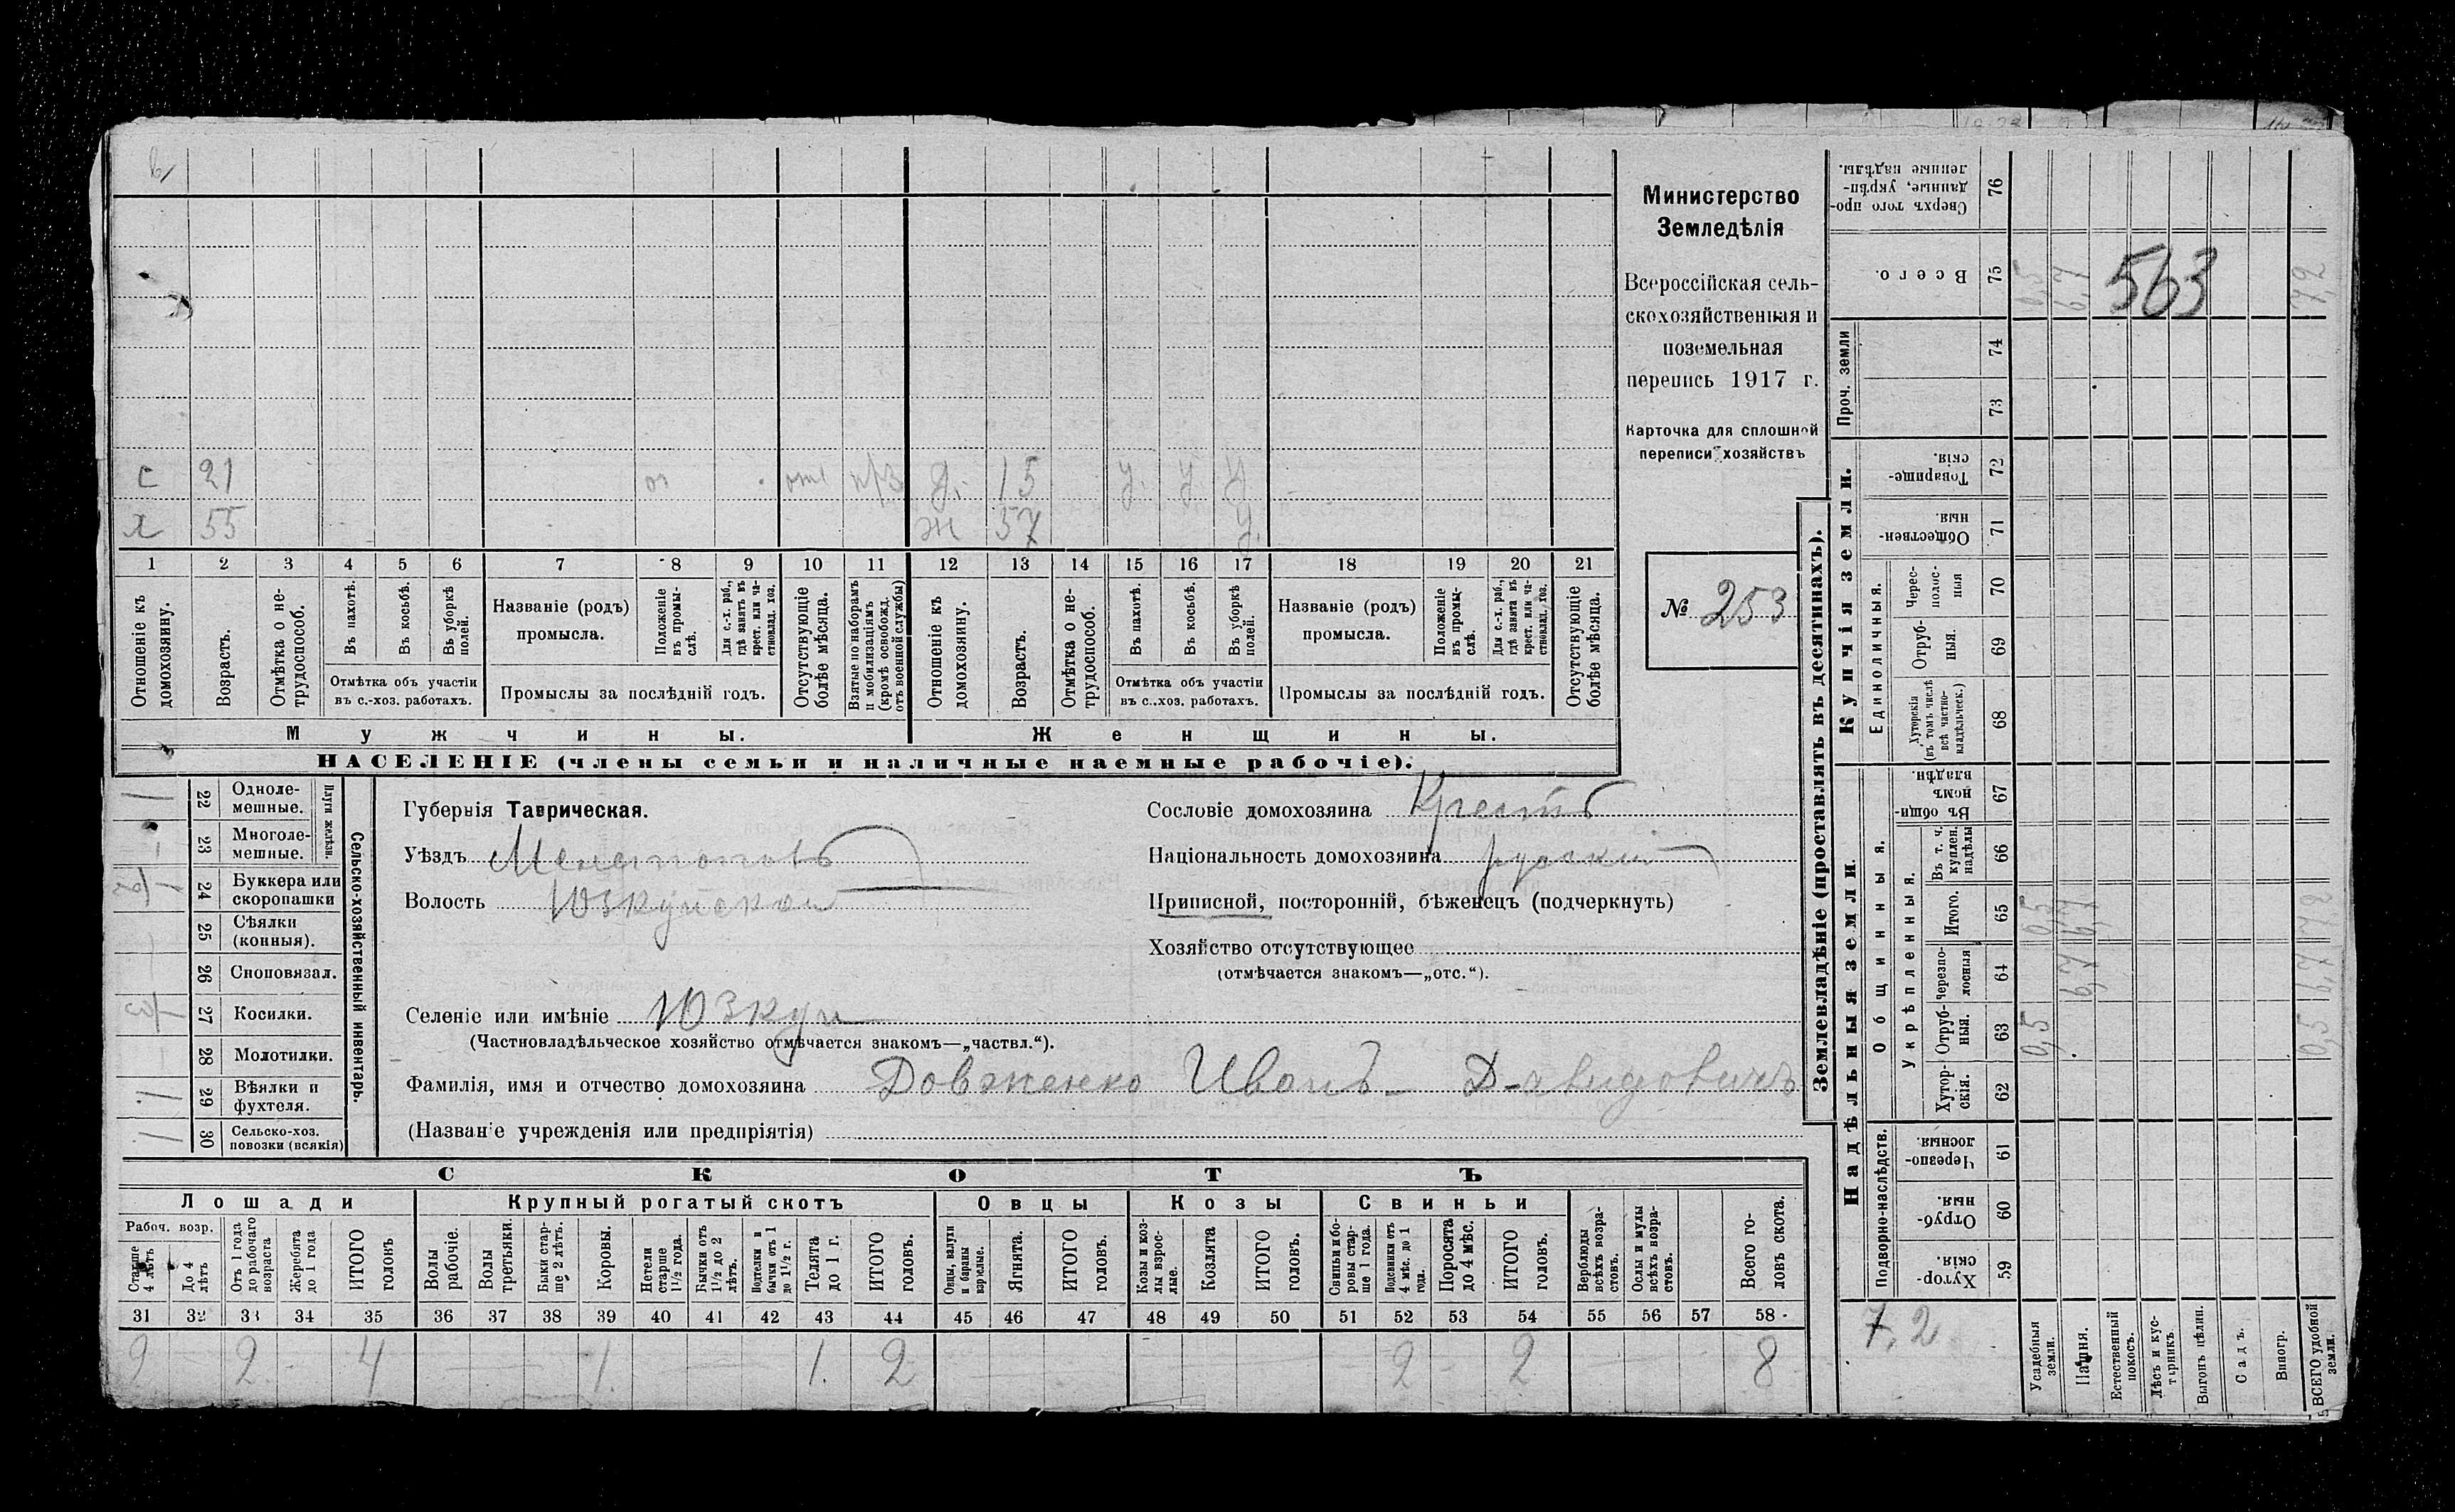 с 21 отс приз д. 15 у. у. у.
х 55 ж 57 у.
1 2 3 4 5 6 7 8 9 10 11 12 13 14 15 16 17 18 19 20 21
Отношеніе къ домохозяину.
Возрастъ.
Отмѣтка о не-
трудоспособ.
Въ пахотѣ.
Въ косьбѣ.
Въ уборкѣ полей.
Отмѣтка объ участіи
въ с.-хоз. работахъ.
Названіе (родъ)
промысла.
Положеніе въ промы-
слѣ.
Для с.-х. раб.,
гдѣ занятъ въ
крест. или ча-
стновлад. хоз.
Промыслы за послѣдній годъ.
Отсутствующіе
болѣе мѣсяца.
Взятые по наборамъ
и мобилизаціямъ
(кромѣ освобожд.
отъ военной службы)
Отношеніе къ
домохозяину.
Возрастъ.
Отмѣтка о не-
трудоспособ.
Въ пахотѣ.
Въ косьбѣ.
Въ уборкѣ полей.
Отмѣтка объ участіи
въ с.-хоз. работахъ.
Названіе (родъ)
промысла.
Положеніе
въ промы-
слѣ.
Для с.-х. раб.,
гдѣ занята въ
крест. или ча-
стновлад. хоз.
Промыслы за послѣдній годъ.
Отсутствующіе
болѣе мѣсяца.
Мужчины.
Женщины.
НАСЕЛЕНІЕ (члены семьи и наличные наемные рабочіе).
Министерство
Земледѣлія
Всероссійская сель-
скохозяйственная и
поземельная
перепись 1917 г.
Карточка для сплошной
переписи хозяйствъ
№ 253
Сельско-хозяйственный инвентарь.
Плуги желѣзн.
22 Одноле-
мешные.
23 Многоле-
мешные.
24 Буккера или
скоропашки
25 Сѣялки
(конныя).
26 Сноповязал.
27 Косилки.
28 Молотилки.
29 Вѣялки и
фухтеля.
30 Сельско-хоз.
повозки (всякія)
Губернія Таврическая.
Уѣздъ Мелитополь
Волость Юзкуйской
Селеніе или имѣніе Юзкуи
(Частновладѣльческое хозяйство отмѣчается знакомъ—„частвл.“).
Фамилія, имя и отчество домохозяина Довженко Иванъ Давидовичъ
(Названіе учрежденія или предпріятія)
Сословіе домохозяина Крестъ
Національность домохозяина русский
Приписной, посторонній, бѣженецъ (подчеркнуть)
Хозяйство отсутствующее
(отмѣчается знакомъ—„отс.“).
СКОТЪ
Лошади
Крупный рогатый скотъ
Овцы
Козы
Свиньи
Рабоч. возр.
Старше
4 лѣтъ
До 4
лѣтъ
Отъ 1 года
до рабочаго
возраста
Жеребята
до 1 года
ИТОГО
головъ
Волы
рабочіе.
Волы
третьяки.
Быки стар-
ше 2 лѣтъ.
Коровы.
Нетели
старше
1½ года.
Бычки отъ
1½ до 2
лѣтъ.
Подтелки и
бычки отъ 1
до 1½ г.
Телята
до 1 г.
ИТОГО
головъ.
Овцы, валухи
и бараны
взрослые.
Ягнята.
ИТОГО
головъ.
Козы и коз-
лы взрос-
лые.
Козлята
ИТОГО
головъ.
Свиньи и бо-
ровы стар-
ше 1 года.
Подсвинки отъ
4 мѣс. до 1
года.
Поросята
до 4 мѣс.
ИТОГО
головъ.
Верблюды
всѣхъ возра-
стовъ.
Ослы и мулы
всѣхъ возра-
стовъ.
Всего го-
ловъ скота.
31 32 33 34 35 36 37 38 39 40 41 42 43 44 45 46 47 48 49 50 51 52 53 54 55 56 57 58
2 2 4 1. 1. 2 2 2 8
Землевладѣніе (проставлять въ десятинахъ).
Надѣльныя земли
Купчія земли.
Проч. земли
Сверхъ того про-
данные, укрѣп-
ленные надѣлы. 76
Всего. 75 0,5 6,7 7,2
563
74
73
Товарище-
скія. 72
Обществен-
ныя. 71
Единоличныя.
Черес-
полос-
ныя 70
Отруб-
ныя. 69
Хуторскія
(въ томъ числѣ
всѣ частно-
владѣльческ.) 68
Общинныя.
Въ общи
номъ
владѣн. 67
Укрѣпленныя.
Въ т. ч.
куплен.
надѣлы 66
Итого. 65 0,5 6,7 7,2
Черезпо-
лосныя 64 6,7 6,7
Отруб-
ныя. 63 0,5 0,5
Хутор-
скія. 62
Подворно-наслѣдств.
Черезпо-
лосныя 61
Отруб-
ныя. 60
Хутор-
скія. 59
7,2
Усадебныя
земли.
Пашня.
Естественный
покосъ.
Лѣсъ и кус-
тарникъ.
Выгонъ цѣлин.
Садъ.
Виногр.
ВСЕГО удобной
земли.